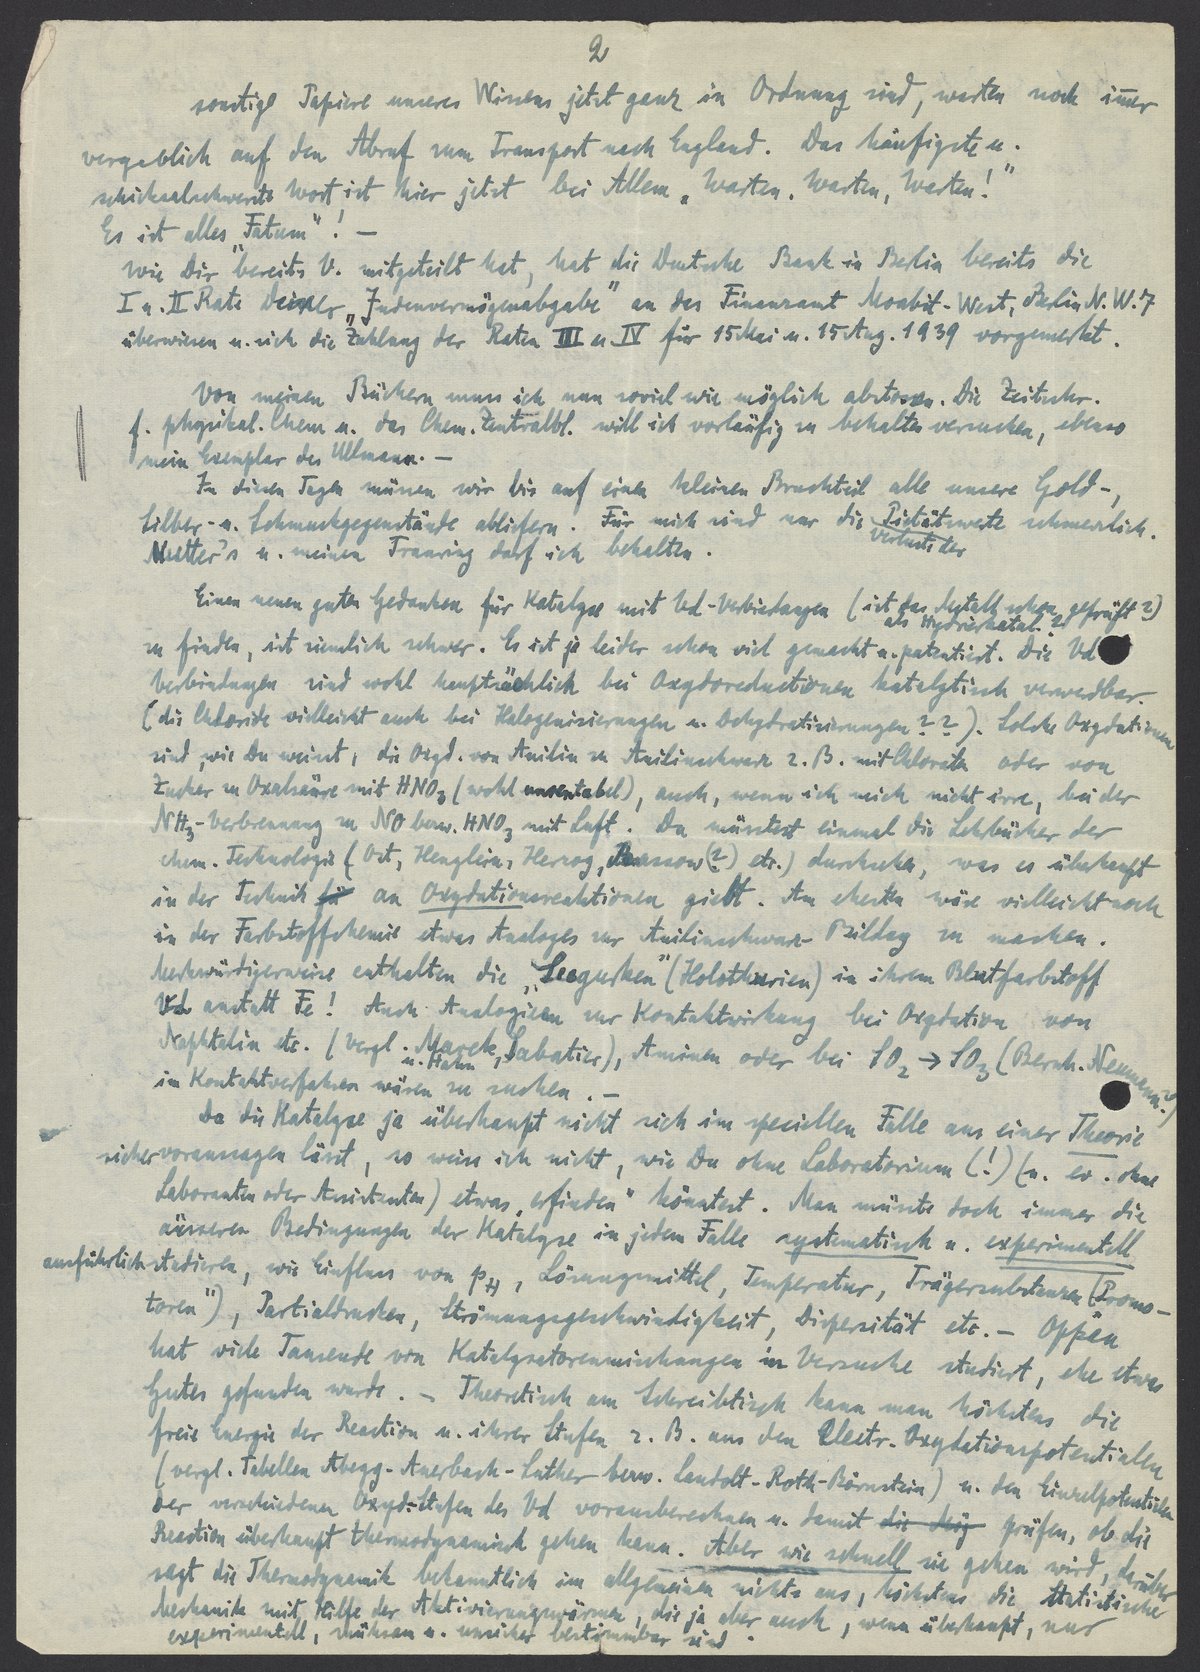 2
sonstige Papiere unseres Wissens jetzt ganz in Ordnung sind, warten noch immer
vergeblich auf den Abruf zum Transport nach England. Das häufigste u.
schicksalschwerste Wort ist hier jetzt bei Allem „Warten, Warten, Warten!"
Es ist alles „Fatum"! —
Wie Dir bereits V. mitgeteilt hat, hat die Deutsche Bank in Berlin bereits die
I u. II Rate Deiner „Judenvermögenabgabe" an das Finanzamt Moabit-West, Berlin N.W.7
überwiesen u. sich die Zahlung der Raten III u. IV für 15 Mai u. 15 Aug. 1939 vorgemerkt.
Von meinen Büchern muss ich nun soviel wie möglich abstossen. Die Zeitschr.
f. physikal. Chem u. das Chem. Zentralbl. will ich vorläufig zu behalten versuchen, ebenso
mein Exemplar des Ullmann. —
In diesen Tagen müssen wir bis auf einen kleinen Bruchteil alle unsere Gold-,
Silber- u. Schmuckgegenstände abliefern. Für mich sind nur die Pietätswerte schmerzlich.
Verluste der
Mutter's u. meinen Trauring darf ich behalten.
Einen neuen guten Gedanken für Katalyse mit Vd-Verbindungen (ist das Metall schon geprüft?)
als Hydrierkatal.
zu finden, ist ziemlich schwer. Es ist ja leider schon viel gemacht u. patentiert. Die Vd
Verbindungen sind wohl hauptsächlich bei Oxydoreductionen katalytisch verwendbar.
(die Chloride vielleicht auch bei Halogenisierungen u. Dehydratisierungen ??). Solche Oxydationen
sind, wie Du weisst, die Oxyd. von Anilin zu Anilinschwarz z. B. mit Chloraten oder von
Zucker zu Oxalsäure mit HNO3 (wohl unrentabel), auch, wenn ich mich nicht irre, bei der
NH3-Verbrennung zu NO bezw. HNO3 mit Luft. Du müsstest einmal die Lehrbücher der
chem. Technologie (Ost, Henglein, Herzog, (?) etc.) durchsehen, was es überhaupt
in der Technik an Oxydationsreaktionen giebt. Am ehesten wäre vielleicht noch
in der Farbstoffchemie etwas Analoges zur Anilinschwarz-Bildung zu machen.
Merkwürdigerweise enthalten die „Seegurken" (Holothurien) in ihrem Blutfarbstoff
Vd anstatt Fe! Auch Analogieen zur Kontaktwirkung bei Oxydation von
Naphtalin etc. (vergl. Marek, Sabatier), Aminen oder bei SO2 → SO3 (Bernh. Neumann?)
u. Hahn
im Kontaktverfahren wären zu suchen. —
Da die Katalyse ja überhaupt nicht sich im speciellen Falle aus einer Theorie
sicher voraussagen lässt, so weiss ich nicht, wie Du ohne Laboratorium (!) (u. ev. ohne
Laboranten oder Assistenten) etwas „erfinden" könntest. Man müsste doch immer die
äusseren Bedingungen der Katalyse in jedem Falle systematisch u. experimentell
ausführlich studieren, wie Einfluss von pH, Lösungsmittel, Temperatur, Trägersubstanzen („Promo-
toren"), Partialdrucken, Strömungsgeschwindigkeit, Dispersität etc. — Oppau
hat viele Tausende von Katalysatorenmischungen in Versuche studiert, ehe etwas
Gutes gefunden wurde. — Theoretisch am Schreibtisch kann man höchstens die
freie Energie der Reaction u. ihrer Stufen z. B. aus den Electr. Oxydationspotentialen
(vergl. Tabellen Abegg-Auerbach-Luther bezw. Landolt-Roth-Börnstein) u. den Einzelpotentialen
der verschiedenen Oxyd-Stufen des Vd vorausberechnen u. damit die Mög prüfen, ob die
Reaction überhaupt thermodynamisch gehen kann. Aber wie schnell sie gehen wird, darüber
sagt die Thermodynamik bekanntlich im allgemeinen nichts aus, höchstens die statistische
Mechanik mit Hilfe der Aktivierungswärmen, die ja aber auch, wenn überhaupt, nur
experimentell, mühsam u. unsicher bestimmbar sind.